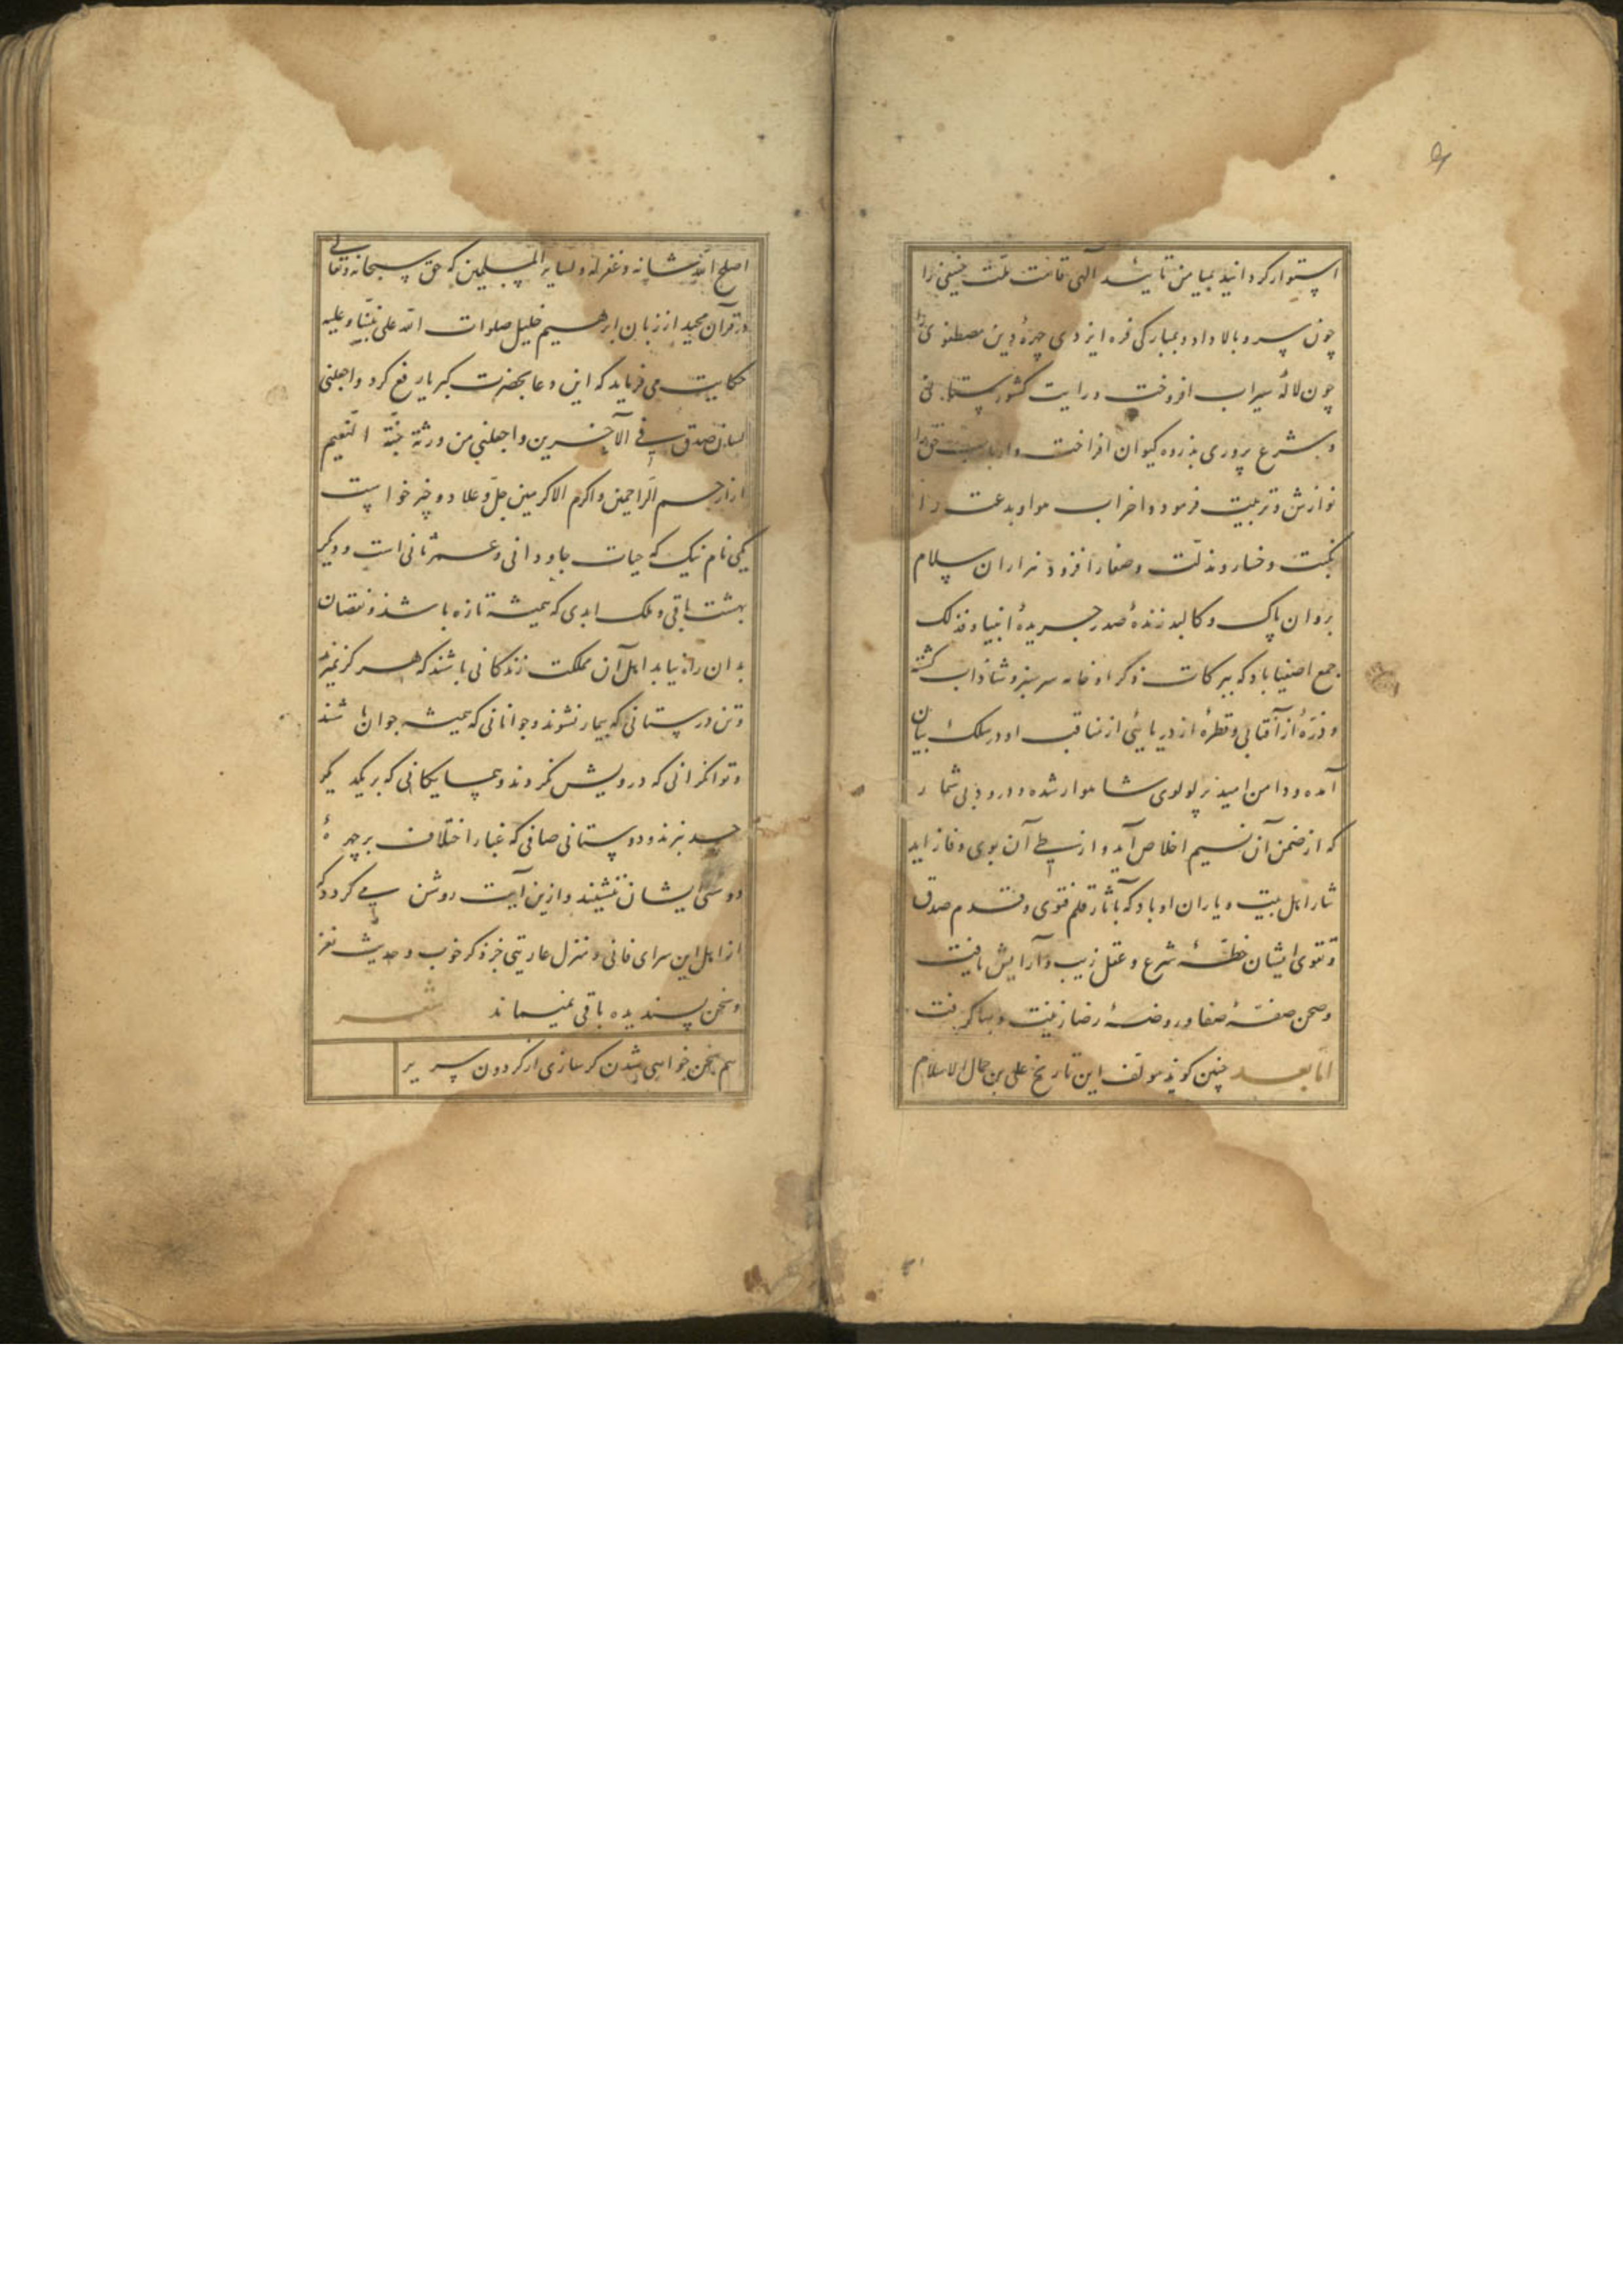 استوار گردانید بمیامن تائید الهی قامت ملت حنیفی را
چون سرو بالا داد و بمبارکی فره ایزدی چهرهٔ دین مصطفوی را
چون لالهٔ سیراب افروخت و رایت کشورستانی
و شرع پروری بذروه کیوان افراخت و ارباب حق را
نوازش و تربیت فرمود و احزاب هوا و بدعت را
نکبت و خسار و مذلت و صغار افزود هزاران سلام
بروان پاک و کالبد زندهٔ صدر جریدهٔ انبیا و فذلک
جمع اصفیا باد که ببرکات ذکر او خامه سرسبز و شاداب گشته
و ذرهٔ از آفتابی و قطرهٔ از دریائی از مناقب او در سلک بیان
آمده و دامن امید پر لولوی شاهوار شده و درود بی شمار
که از ضمن آن نسیم اخلاص آید و از طی آن بوی وفا زاید
نثار اهل بیت و یاران او باد که بآثار قلم فتوی و قدم صدق
و تقوی ایشان خطهٔ شرع و عقل زیب و آرایش یافت
و صحن صفهٔ صفا و روضهٔ رضا زینت و بها گرفت
اما بعد چنین گوید مولف این تاریخ علی بن جمال الاسلام
اصلح الله شانه و غفر له و لسایر المسلمین که حق سبحانه و تعالی
در قرآن مجید از زبان ابرهیم خلیل صلوات الله علی نبینا و علیه
حکایت می فرماید که این دعا بحضرت کبریا رفع کرد واجعلنی
لسان صدق فی الآخرین واجعلنی من ورثة جنة النعیم
از ارحم الراحمین و اکرم الاکرمین جل و علا دو چیز خواست
یکی نام نیک که حیات جاودانی و عمر ثانی است و دیگر
بهشت باقی و ملک ابدی که همیشه تازه باشد و نقصان
بدان راه نیابد اهل آن مملکت زندگانی باشند که هرگز نمیرند
و تن درستانی که بیمار نشوند و جوانانی که همیشه جوان باشند
و توانگرانی که درویش نگردند و همسایگانی که بر یکدیگر
حسد نبرند و دوستانی صافی که غبار اختلاف بر چهرهٔ
دوستی ایشان ننشیند و ازین آیت روشن می گردد که
از اهل این سرای فانی و منزل عاریتی جز ذکر خوب و حدیث نغز
و سخن پسندیده باقی نمیماند شعر
هم سخن خواهی شدن گر سازی از گردون سریر